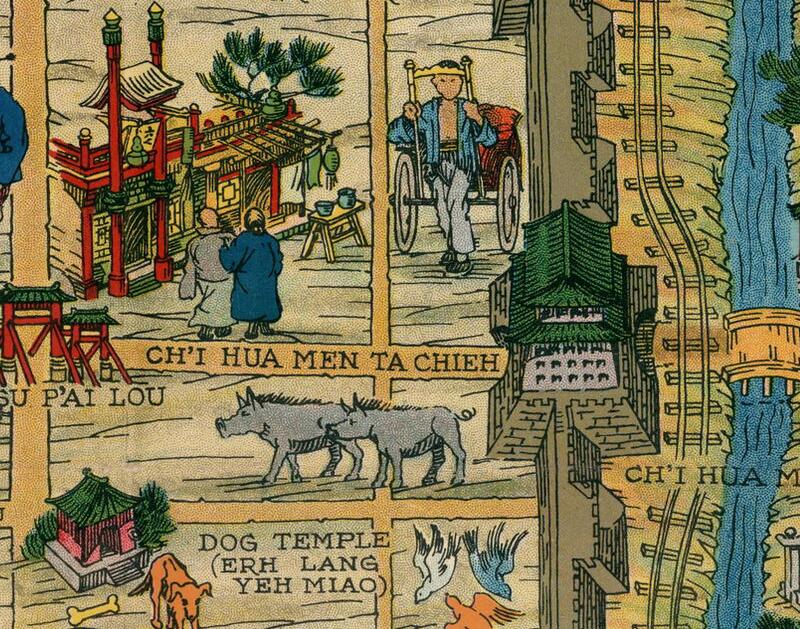 CH'I HUA MEN TA CHIEH
SU P'AI LOU
CH'I HUA M
DOG TEMPLE
(ERH LANG
YEH MIAO)